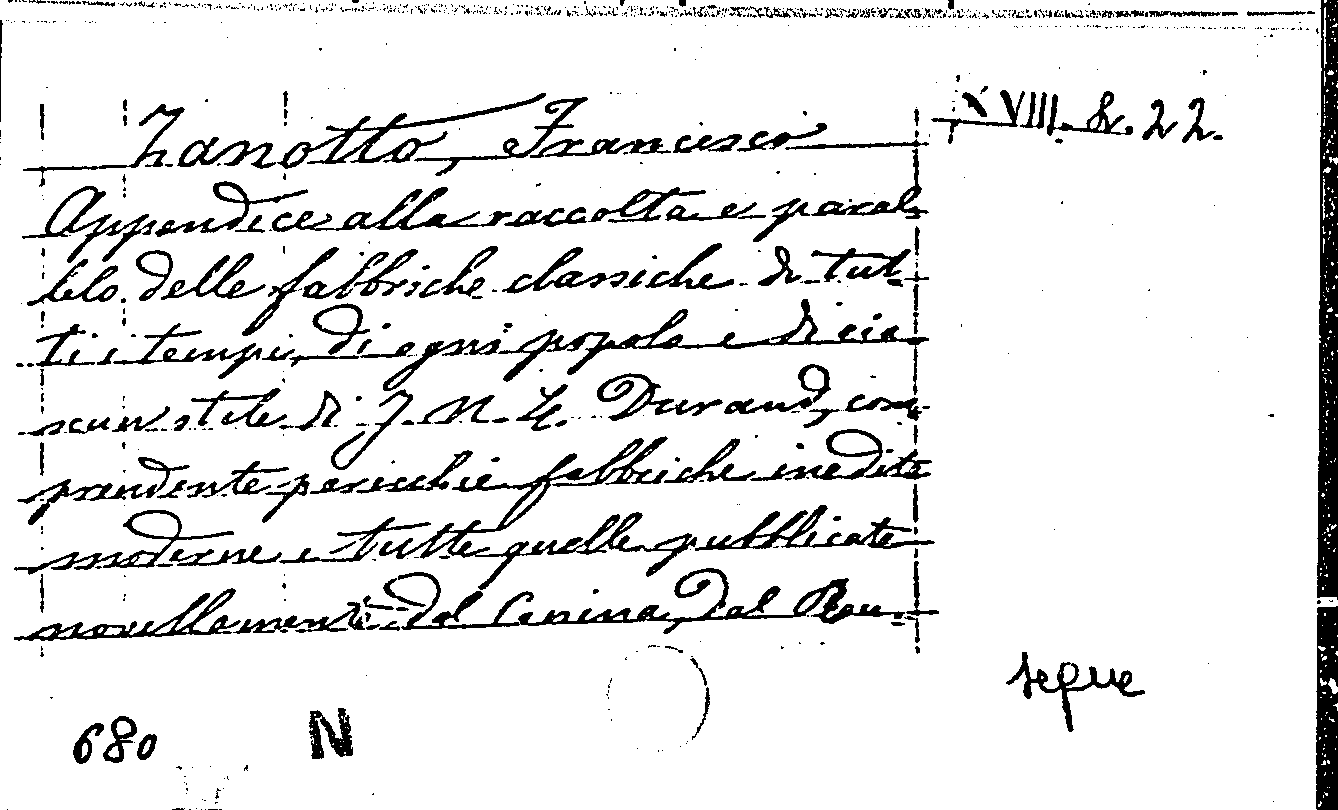 Zanotto, Francesco
XVIII. &. 22.
Appendice alla raccolta e paral-
lelo delle fabbriche classiche di tut-
ti i tempi, di ogni popolo e di cia-
scun stile di J. N. L. Durand, com-
prendente parecchie fabbriche inedite
moderne e tutte quelle pubblicate
novellamente dal Canina, dal Rou-
segue
680
N